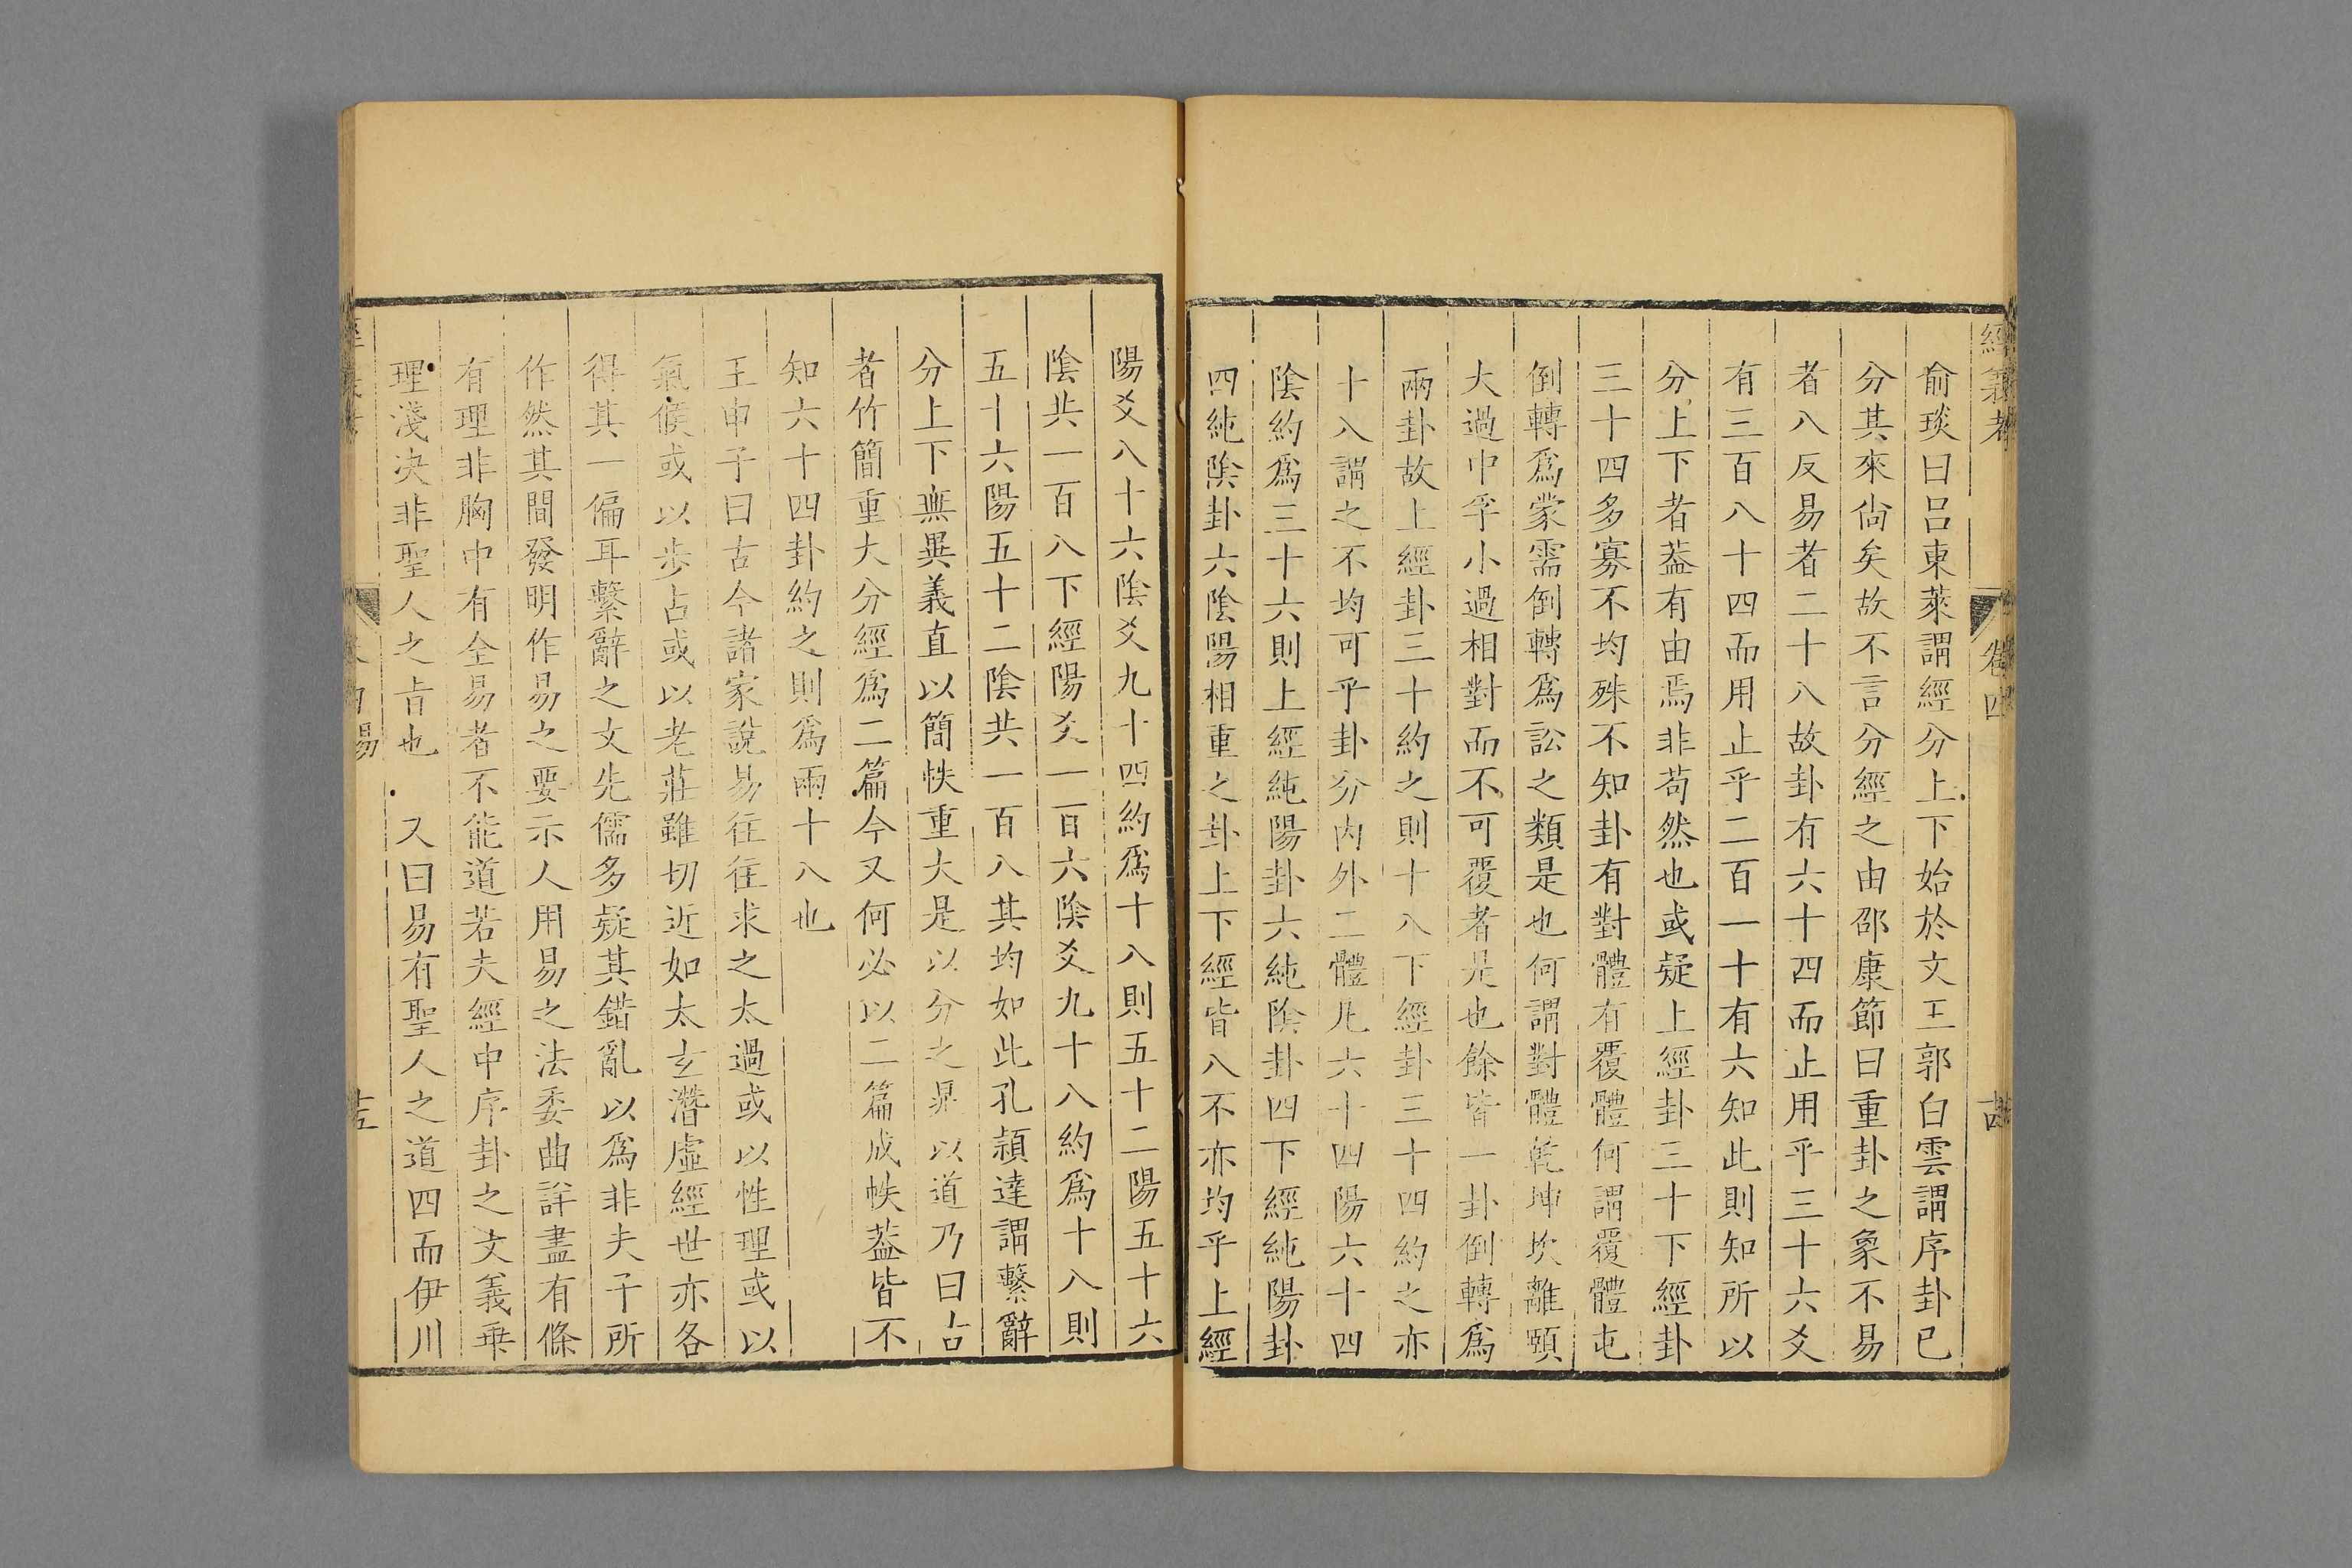 經義考
卷四
俞琰曰呂東萊謂經分上下始於文王郭白雲謂序卦已
分其來尙矣故不言分經之由邵康節曰重卦之象不易
者八反易者二十八故卦有六十四而止用乎三十六爻
有三百八十四而用止乎二百一十有六知此則知所以
分上下者葢有由焉非苟然也或疑上經卦三十下經卦
三十四多寡不均殊不知卦有對體有覆體何謂覆體屯
倒轉爲蒙需倒轉爲訟之類是也何謂對體乾坤坎離頤
大過中孚小過相對而不可覆者是也餘皆一卦倒轉爲
兩卦故上經卦三十約之則十八下經卦三十四約之亦
十八謂之不均可乎卦分內外二體凡六十四陽六十四
陰約爲三十六則上經純陽卦六純陰卦四下經純陽卦
四純陰卦六陰陽相重之卦上下經皆八不亦均乎上經
陽爻八十六陰爻九十四約爲十八則五十二陽五十六
陰共一百八下經陽爻一百六陰爻九十八約爲十八則
五十六陽五十二陰共一百八其均如此孔頴達謂繫辭
分上下無異義直以簡帙重大是以分之晁以道乃曰古
者竹簡重大分經爲二篇今又何必以二篇成帙葢皆不
知六十四卦約之則爲兩十八也
王申子曰古今諸家說易往往求之太過或以性理或以
氣候或以步占或以老莊雖切近如太玄潛虛經世亦各
得其一偏耳繫辭之文先儒多疑其錯亂以爲非夫子所
作然其間發明作易之要示人用易之法委曲詳盡有條
有理非胸中有全易者不能道若夫經中序卦之文義乖
理淺决非聖人之旨也　又曰易有聖人之道四而伊川